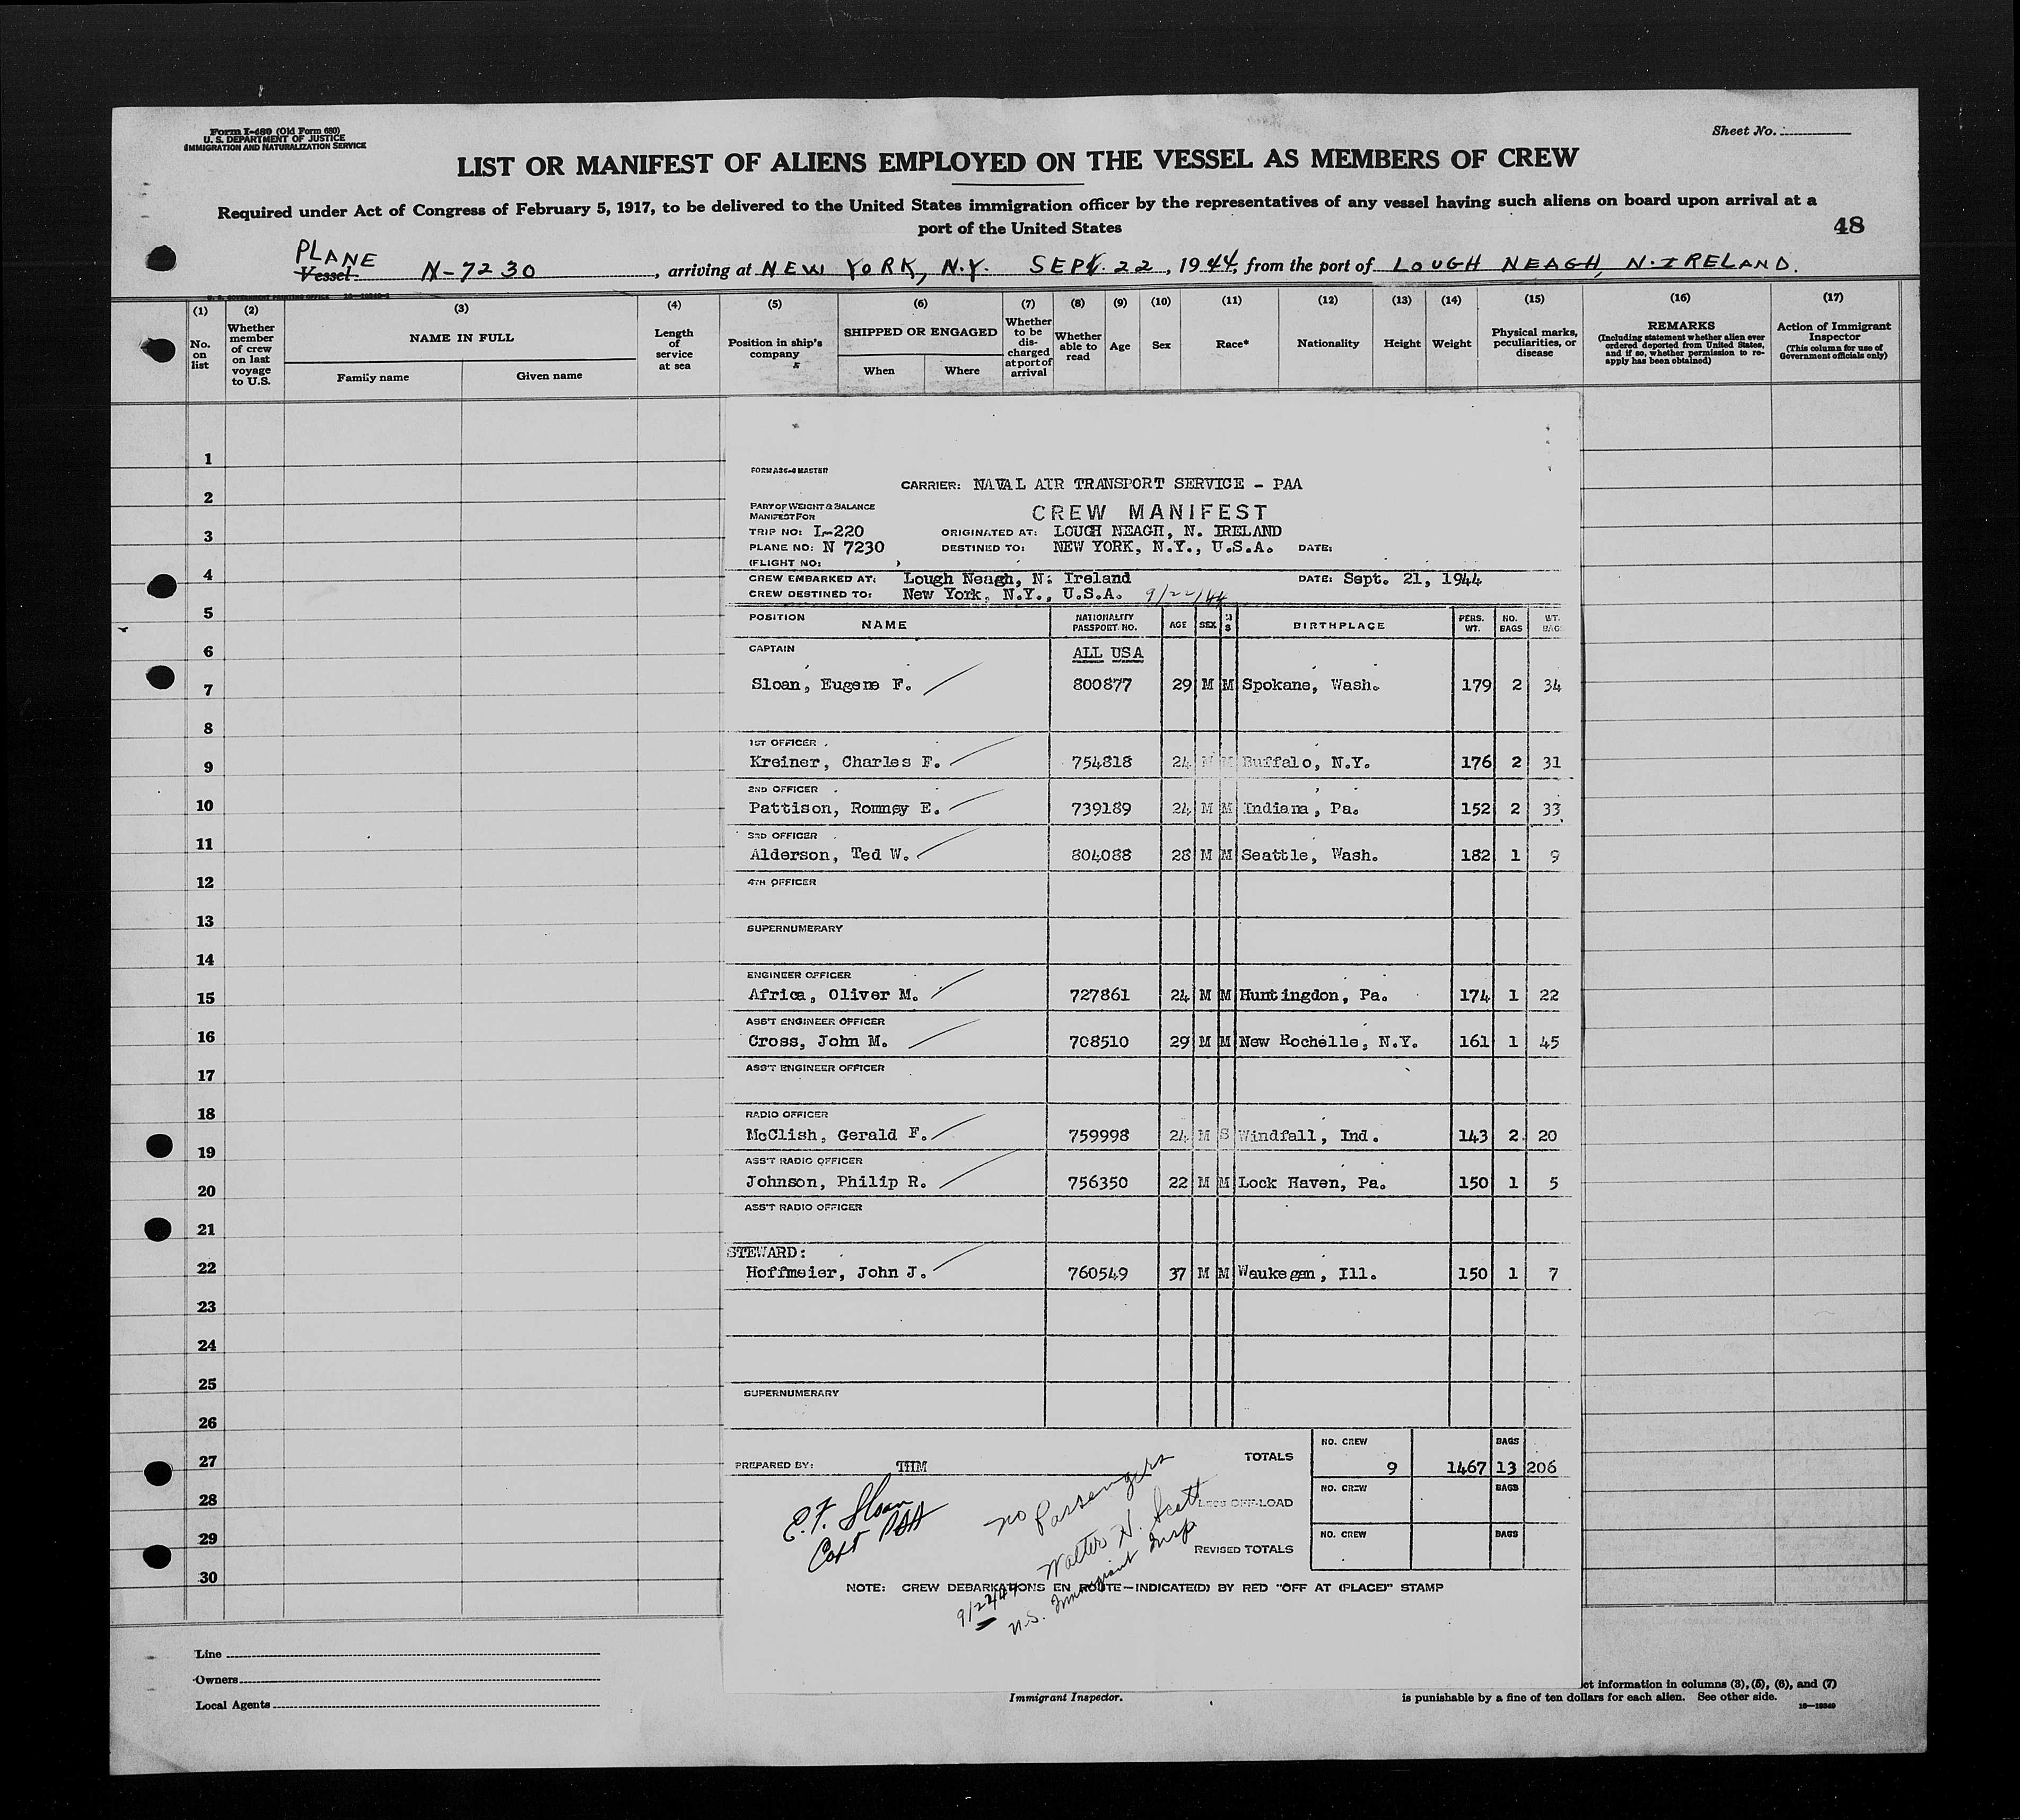 Form I-480 (Old Form 680)
U. S. DEPARTMENT OF JUSTICE
IMMIGRATION AND NATURALIZATION SERVICE
Sheet No.
LIST OR MANIFEST OF ALIENS EMPLOYED ON THE VESSEL AS MEMBERS OF CREW
Required under Act of Congress of February 5, 1917, to be delivered to the United States immigration officer by the representatives of any vessel having such aliens on board upon arrival at a
port of the United States
48
PLANE
Vessel N-7230, arriving at NEW YORK, N.Y. SEPT. 22, 1944, from the port of LOUGH NEAGH, N. IRELAND.
(1) (2) (3) (4) (5) (6) (7) (8) (9) (10) (11) (12) (13) (14) (15) (16) (17)
No. on list
Whether member of crew on last voyage to U.S.
NAME IN FULL
Family name
Given name
Length of service at sea
Position in ship's company
SHIPPED OR ENGAGED
When
Where
Whether to be discharged at port of arrival
Whether able to read
Age
Sex
Race*
Nationality
Height
Weight
Physical marks, peculiarities, or disease
REMARKS
(Including statement whether alien ever ordered deported from United States, and if so, whether permission to re-apply has been obtained)
Action of Immigrant Inspector
(This column for use of Government officials only)
1
2
3
4
5
6
7
8
9
10
11
12
13
14
15
16
17
18
19
20
21
22
23
24
25
26
27
28
29
30
CARRIER: NAVAL AIR TRANSPORT SERVICE - PAA
PART OF WEIGHT & BALANCE
MANIFEST FOR
CREW MANIFEST
TRIP NO: L-220 ORIGINATED AT: LOUGH NEAGH, N. IRELAND
PLANE NO: N 7230 DESTINED TO: NEW YORK, N.Y., U.S.A. DATE:
(FLIGHT NO:
CREW EMBARKED AT: Lough Neagh, N. Ireland DATE: Sept. 21, 1944
CREW DESTINED TO: New York, N.Y., U.S.A. 9/22/44
POSITION NAME NATIONALITY PASSPORT NO. AGE SEX M S BIRTHPLACE PERS. WT. NO. BAGS WT. BAGS
CAPTAIN ALL USA
Sloan, Eugene F. 800877 29 M M Spokane, Wash. 179 2 34
1ST OFFICER
Kreiner, Charles F. 754818 24 M M Buffalo, N.Y. 176 2 31
2ND OFFICER
Pattison, Romney E. 739189 24 M M Indiana, Pa. 152 2 33
3RD OFFICER
Alderson, Ted W. 804088 28 M M Seattle, Wash. 182 1 9
4TH OFFICER
SUPERNUMERARY
ENGINEER OFFICER
Africa, Oliver M. 727861 24 M M Huntingdon, Pa. 174 1 22
ASS'T ENGINEER OFFICER
Cross, John M. 708510 29 M M New Rochelle, N.Y. 161 1 45
ASS'T ENGINEER OFFICER
RADIO OFFICER
McClish, Gerald F. 759998 24 M S Windfall, Ind. 143 2 20
ASS'T RADIO OFFICER
Johnson, Philip R. 756350 22 M M Lock Haven, Pa. 150 1 5
ASS'T RADIO OFFICER
STEWARD:
Hoffmeier, John J. 760549 37 M M Waukegan, Ill. 150 1 7
SUPERNUMERARY
TOTALS NO. CREW 9 1467 BAGS 13 206
PREPARED BY: THM
LESS OFF-LOAD NO. CREW BAGS
REVISED TOTALS NO. CREW BAGS
E. F. Sloan
Capt PAA
no Passengers
Walter H. Scott
U.S. Immigrant Insp
9/22/44
NOTE: CREW DEBARKATIONS EN ROUTE—INDICATE(D) BY RED "OFF AT (PLACE)" STAMP
Line
Owners
Local Agents
Immigrant Inspector.
ct information in columns (3), (5), (6), and (7)
is punishable by a fine of ten dollars for each alien. See other side.